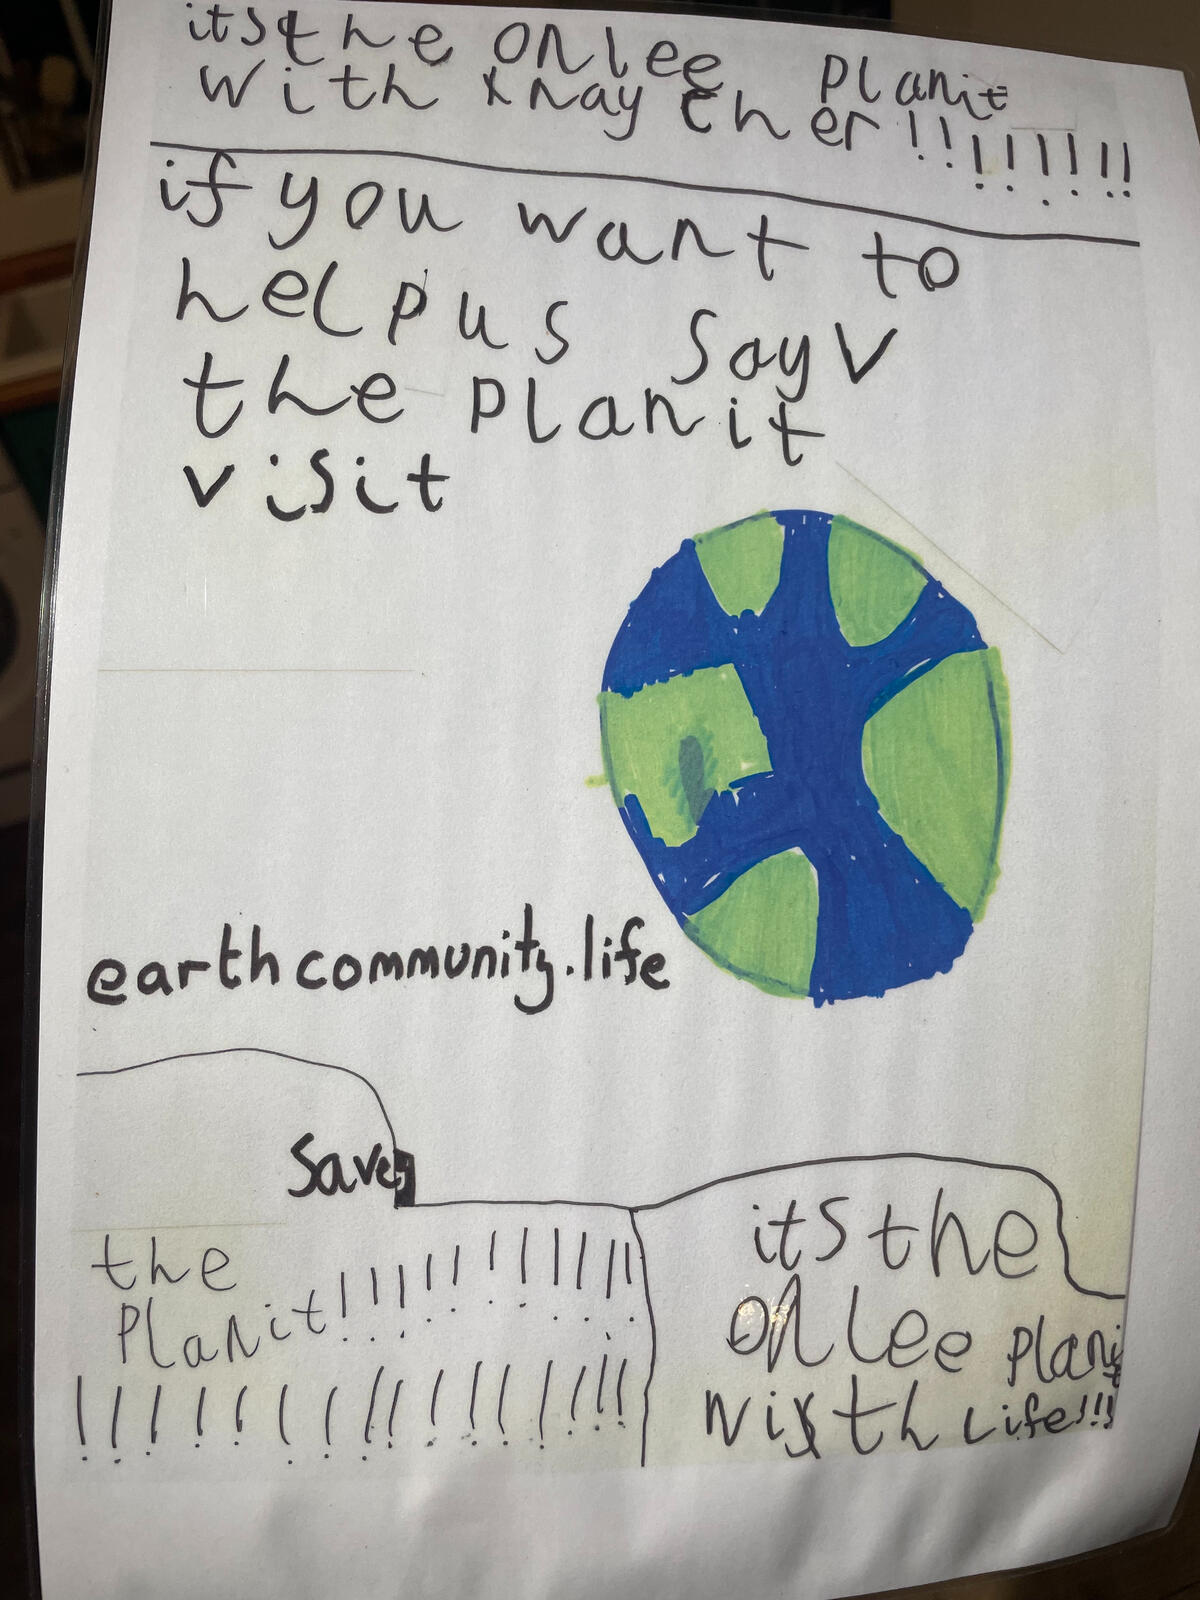 itsthe onlee planit
with nay cher!!!!!!!!!
if you want to
help us sayv
the planit
visit
earthcommunity.life
save
the
planit!!!!!!!!!!!!
!!!!!!!!!!!!!!!!
its the
onlee planit
with life!!!